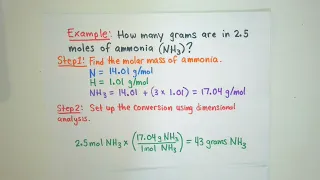 Example: How many grams are in 2.5
moles of ammonia (NH₃)?
Step 1: Find the molar mass of ammonia.
N = 14.01 g/mol
H = 1.01 g/mol
NH₃ = 14.01 + (3 × 1.01) = 17.04 g/mol
Step 2: Set up the conversion using dimensional
analysis.
2.5 mol NH₃ × (17.04 g NH₃ / 1 mol NH₃) = 43 grams NH₃